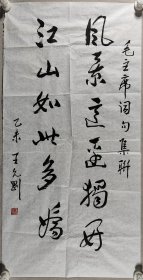 毛主席词句集联
风景这边独好
江山如此多娇
乙未